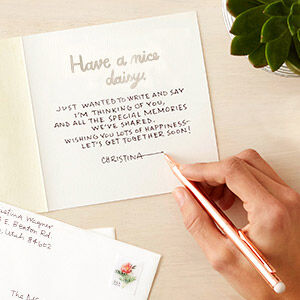 Have a nice
daisy.
JUST WANTED TO WRITE AND SAY
I'M THINKING OF YOU,
AND ALL THE SPECIAL MEMORIES
WE'VE SHARED.
WISHING YOU LOTS OF HAPPINESS-
LET'S GET TOGETHER SOON!
CHRISTINA
Wagner
E. Benton Rd.
Utah 84602
The